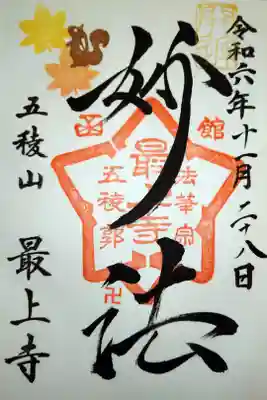 令和六年十一月二十八日
妙法
五稜山
最上寺
函館
法華宗
最上寺
五稜郭
卍